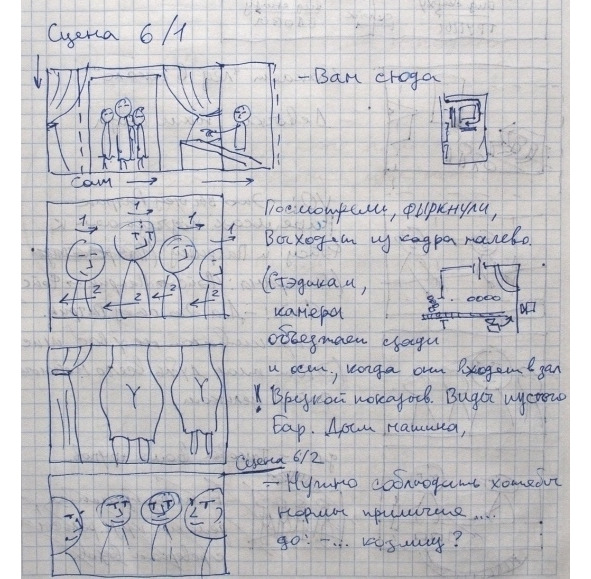 Сцена 6/1
- Вам сюда
Cam
Посмотрели, фыркнули,
Выходят из кадра налево.
1 1 1 1
2 2 2
(Стэдикам,
камера
T
объезжает сзади
и ост., когда они входят в зал
! Врезкой показыв. Виды пустого
Бар. Дым машина,
Сцена 6/2
- Нужно соблюдать хотябы
нормы приличия ....
до: - ... козлищ?